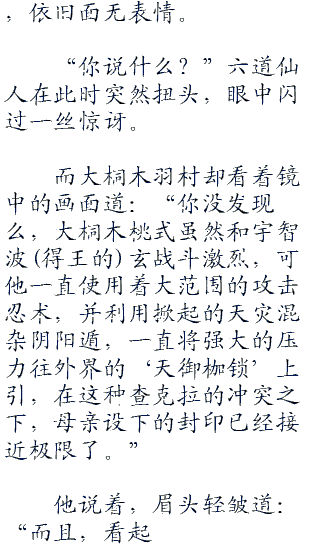 ，依旧面无表情。
“你说什么？”六道仙
人在此时突然扭头，眼中闪
过一丝惊讶。
而大桐木羽村却看着镜
中的画面道：“你没发现
么，大桐木桃式虽然和宇智
波(得王的)玄战斗激烈，可
他一直使用着大范围的攻击
忍术，并利用掀起的天灾混
杂阴阳遁，一直将强大的压
力往外界的‘天御枷锁’上
引，在这种查克拉的冲突之
下，母亲设下的封印已经接
近极限了。”
他说着，眉头轻皱道：
“而且，看起